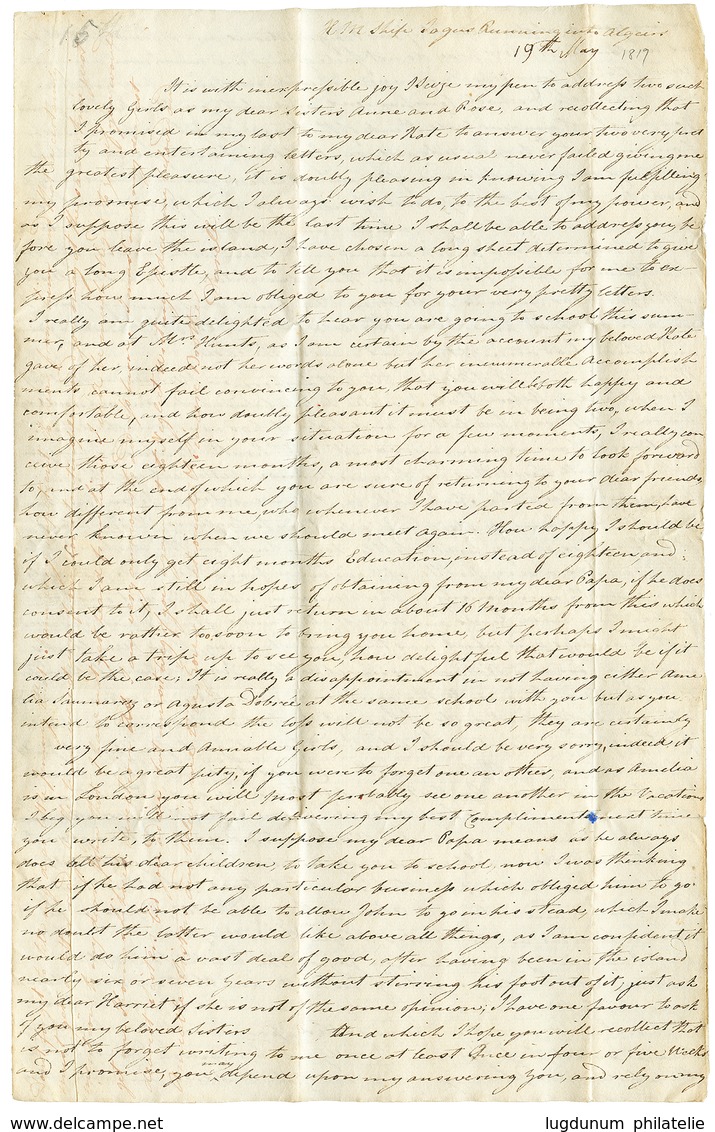 H M Ship Tagus Running into Algeirs
19th May 1819
It is with inexpressible joy I seize my pen to address two such
lovely Girls as my dear Sisters Anne and Rose, and recollecting that
I promised in my last to my dear Kate to answer your two very pret
ty and entertaining letters, which as usual never failed giving me
the greatest pleasure, it is doubly pleasing in knowing I am fulfilling
my promise, which I always wish to do, to the best of my power, and
as I suppose this will be the last time I shall be able to address you, be
fore you leave the island, I have chosen a long sheet determined to give
you a long Epistle, and to tell you that it is impossible for me to ex-
press how much I am obliged to you for your very pretty letters.
I really am quite delighted to hear you are going to school this sum-
mer, and at Mrs Hunts, as I am certain by the account my beloved Kate
gave of her, indeed not her words alone but her innumerable accomplish
ments cannot fail convincing to you, that you will both happy and
comfortable, and how doubly pleasant it must be in being two, when I
imagine myself in your situation for a few moments, I really con
ceive those eighteen months, a most charming time to look forward
to, and at the end of which you are sure of returning to your dear friends,
how different from me, who whenever I have parted from them, have
never known when we should meet again. How happy I should be
if I could only get eight months Education, instead of eighteen and
which I am still in hopes of obtaining from my dear Papa, if he does
consent to it, I shall just return in about 16 Months from this which
would be rather too soon to bring you home, but perhaps I might
just take a trip up to see you, how delightful that would be if it
could be the case; It is really a disappointment in not having either Ame
lia Saumarez or Agusta Dobrée at the same school with you but as you
intend to correspond the loss will not be so great, they are certainly
very fine and Amiable Girls, and I should be very sorry, indeed it
would be a great pity, if you were to forget one an other, and as Amelia
is in London you will most probably see one another in the Vacations
I beg you will not fail delivering my best Compliments next time
you write, to them. I suppose my dear Papa means as he always
does all his dear children, to take you to school, now I was thinking
that if he had not any particular business which obliged him to go
if he should not be able to allow John to go in his stead, which I make
no doubt the latter would like above all things, as I am confident it
would do him a vast deal of good, after having been in the island
nearly six or seven Years without stirring his foot out of it, just ask
my dear Harriet if she is not of the same opinion; I have one favour to ask
of you my beloved Sisters and which I hope you will recollect that
is not to forget writing to me once at least Once in four or five Weeks
and I promise, you may depend upon my answering you, and rely on my
lugdunum philatelie
© www.delcampe.net